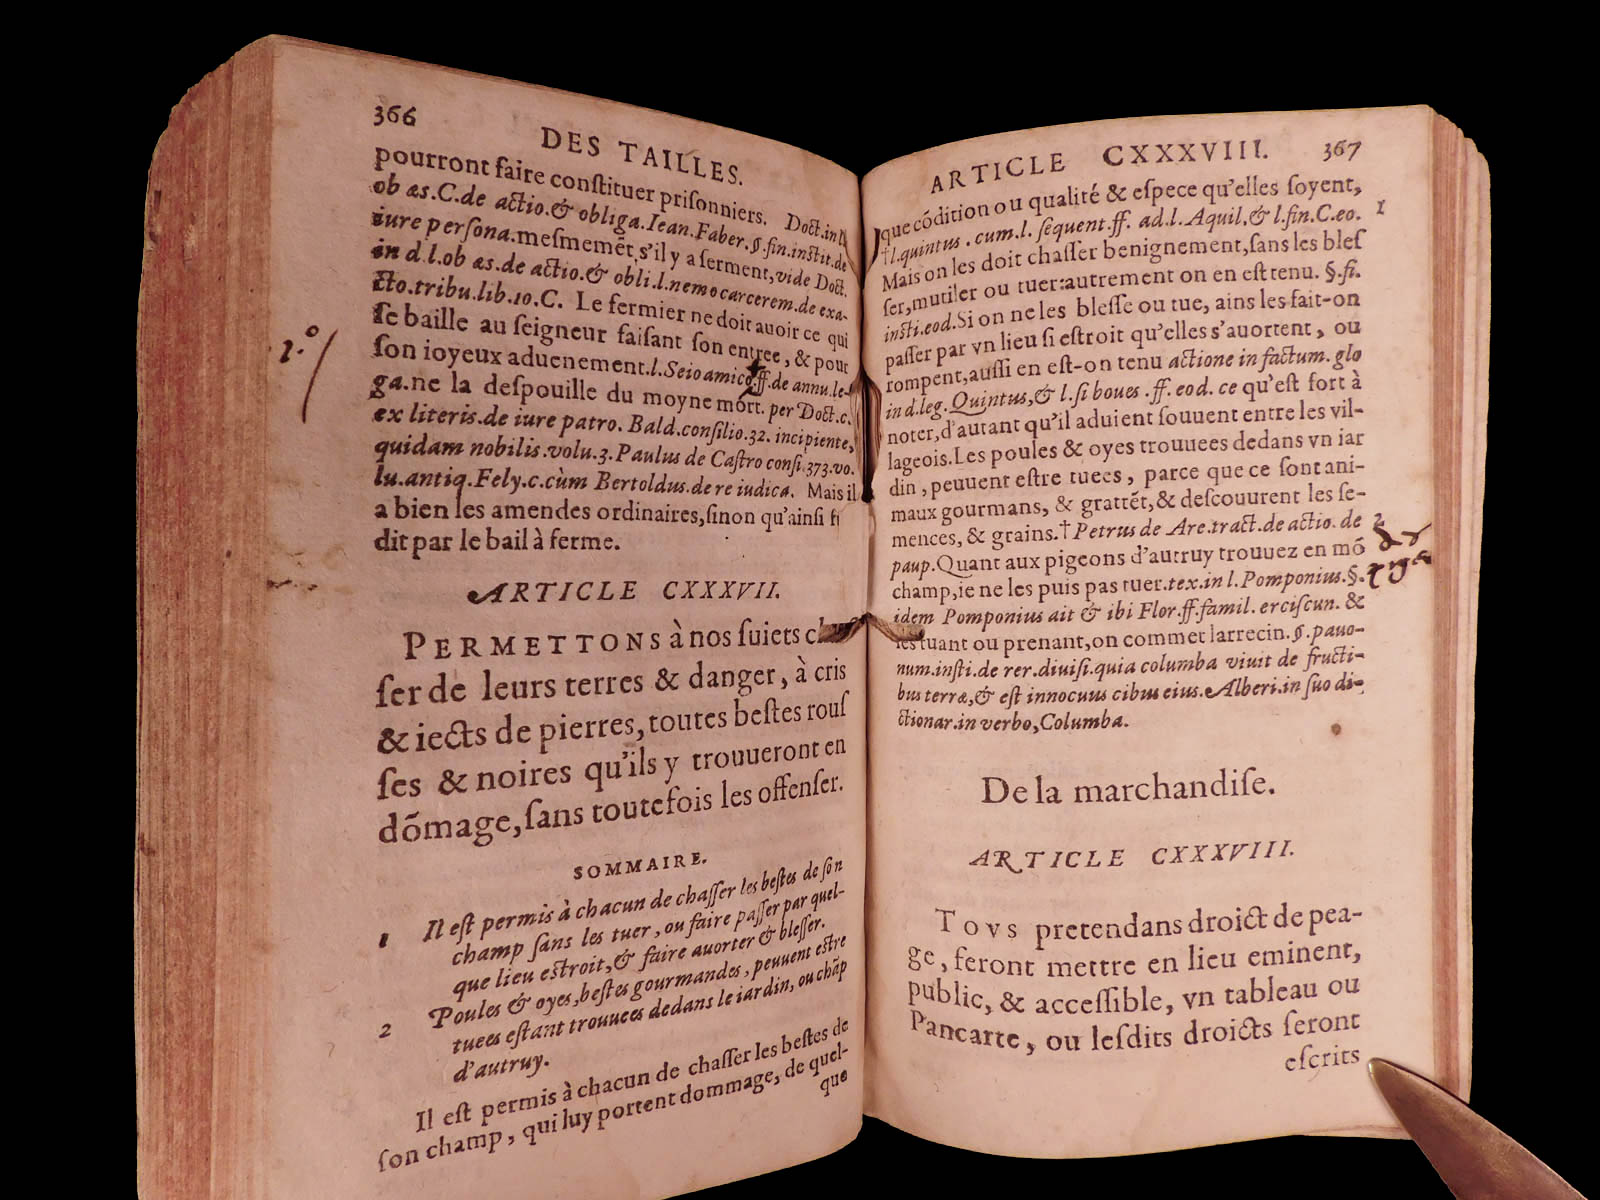 366
DES TAILLES.
pourront faire conſtituer priſonniers. Doct. in l.
ob æs.C.de actio.& obliga.Iean.Faber.§.fin.inſtit.de
iure perſona.meſmemẽt s'il y a ſerment, vide Doct.
in d.l.ob æs.de actio.& obli.l.nemo carcerem.de exa-
cto.tribu.lib.10.C. Le fermier ne doit auoir ce qui
ſe baille au ſeigneur faiſant ſon entree, & pour
ſon ioyeux aduenement.l.Seio amico.ff.de annu.le-
ga.ne la deſpouille du moyne mort. per Doct.c.
ex literis.de iure patro. Bald.conſilio.32. incipiente,
quidam nobilis.volu.3.Paulus de Caſtro conſi.373.vo.
lu.antiq.Fely.c.cùm Bertoldus.de re iudica. Mais il
a bien les amendes ordinaires,ſinon qu'ainſi fu
dit par le bail à ferme.
1.°
ARTICLE CXXXVII.
PERMETTONS à nos ſuiets chaſ
ſer de leurs terres & danger, à cris
& iects de pierres, toutes beſtes rouſ
ſes & noires qu'ils y trouueront en
dõmage, ſans toutefois les offenſer.
SOMMAIRE.
1 Il eſt permis à chacun de chaſſer les beſtes de ſon
champ ſans les tuer, ou faire paſſer par quel-
que lieu eſtroit,& faire auorter & bleſſer.
2 Poules & oyes,beſtes gourmandes, peuuent eſtre
tuees eſtant trouuees dedans le iardin, ou chãp
d'autruy.
Il eſt permis à chacun de chaſſer les beſtes de
ſon champ, qui luy portent dommage, de quel-
que
ARTICLE CXXXVIII. 367
que cõdition ou qualité & eſpece qu'elles ſoyent,
†l.quintus.cum.l. ſequent.ff. ad.l. Aquil.& l.fin.C.eo. 1
Mais on les doit chaſſer benignement,ſans les bleſ
ſer,mutiler ou tuer:autrement on en eſt tenu. §.fi.
inſti.eod.Si on ne les bleſſe ou tue, ains les fait-on
paſſer par vn lieu ſi eſtroit qu'elles s'auortent, ou
rompent,auſſi en eſt-on tenu actione in factum. glo
in d.leg. Quintus,& l.ſi boues .ff. eod. ce qu'eſt fort à
noter,d'autant qu'il aduient ſouuent entre les vil-
lageois.Les poules & oyes trouuees dedans vn iar
din, peuuent eſtre tuees, parce que ce ſont ani-
maux gourmans, & grattẽt,& deſcouurent les ſe-
mences, & grains.†Petrus de Are.tract.de actio. de 2
paup.Quant aux pigeons d'autruy trouuez en mõ
champ,ie ne les puis pas tuer.tex.in l. Pomponius.§.
idem Pomponius ait & ibi Flor.ff.famil. erciſcun. &
les tuant ou prenant,on commet larrecin.§.pauo-
num.inſti.de rer.diuiſi.quia columba viuit de fructi-
bus terræ,& eſt innocuus cibus eius.Alberi.in ſuo di-
ctionar.in verbo,Columba.
De la marchandiſe.
ARTICLE CXXXVIII.
TOVS pretendans droict de pea-
ge, feront mettre en lieu eminent,
public, & acceſſible, vn tableau ou
Pancarte, ou leſdits droicts ſeront
eſcrits